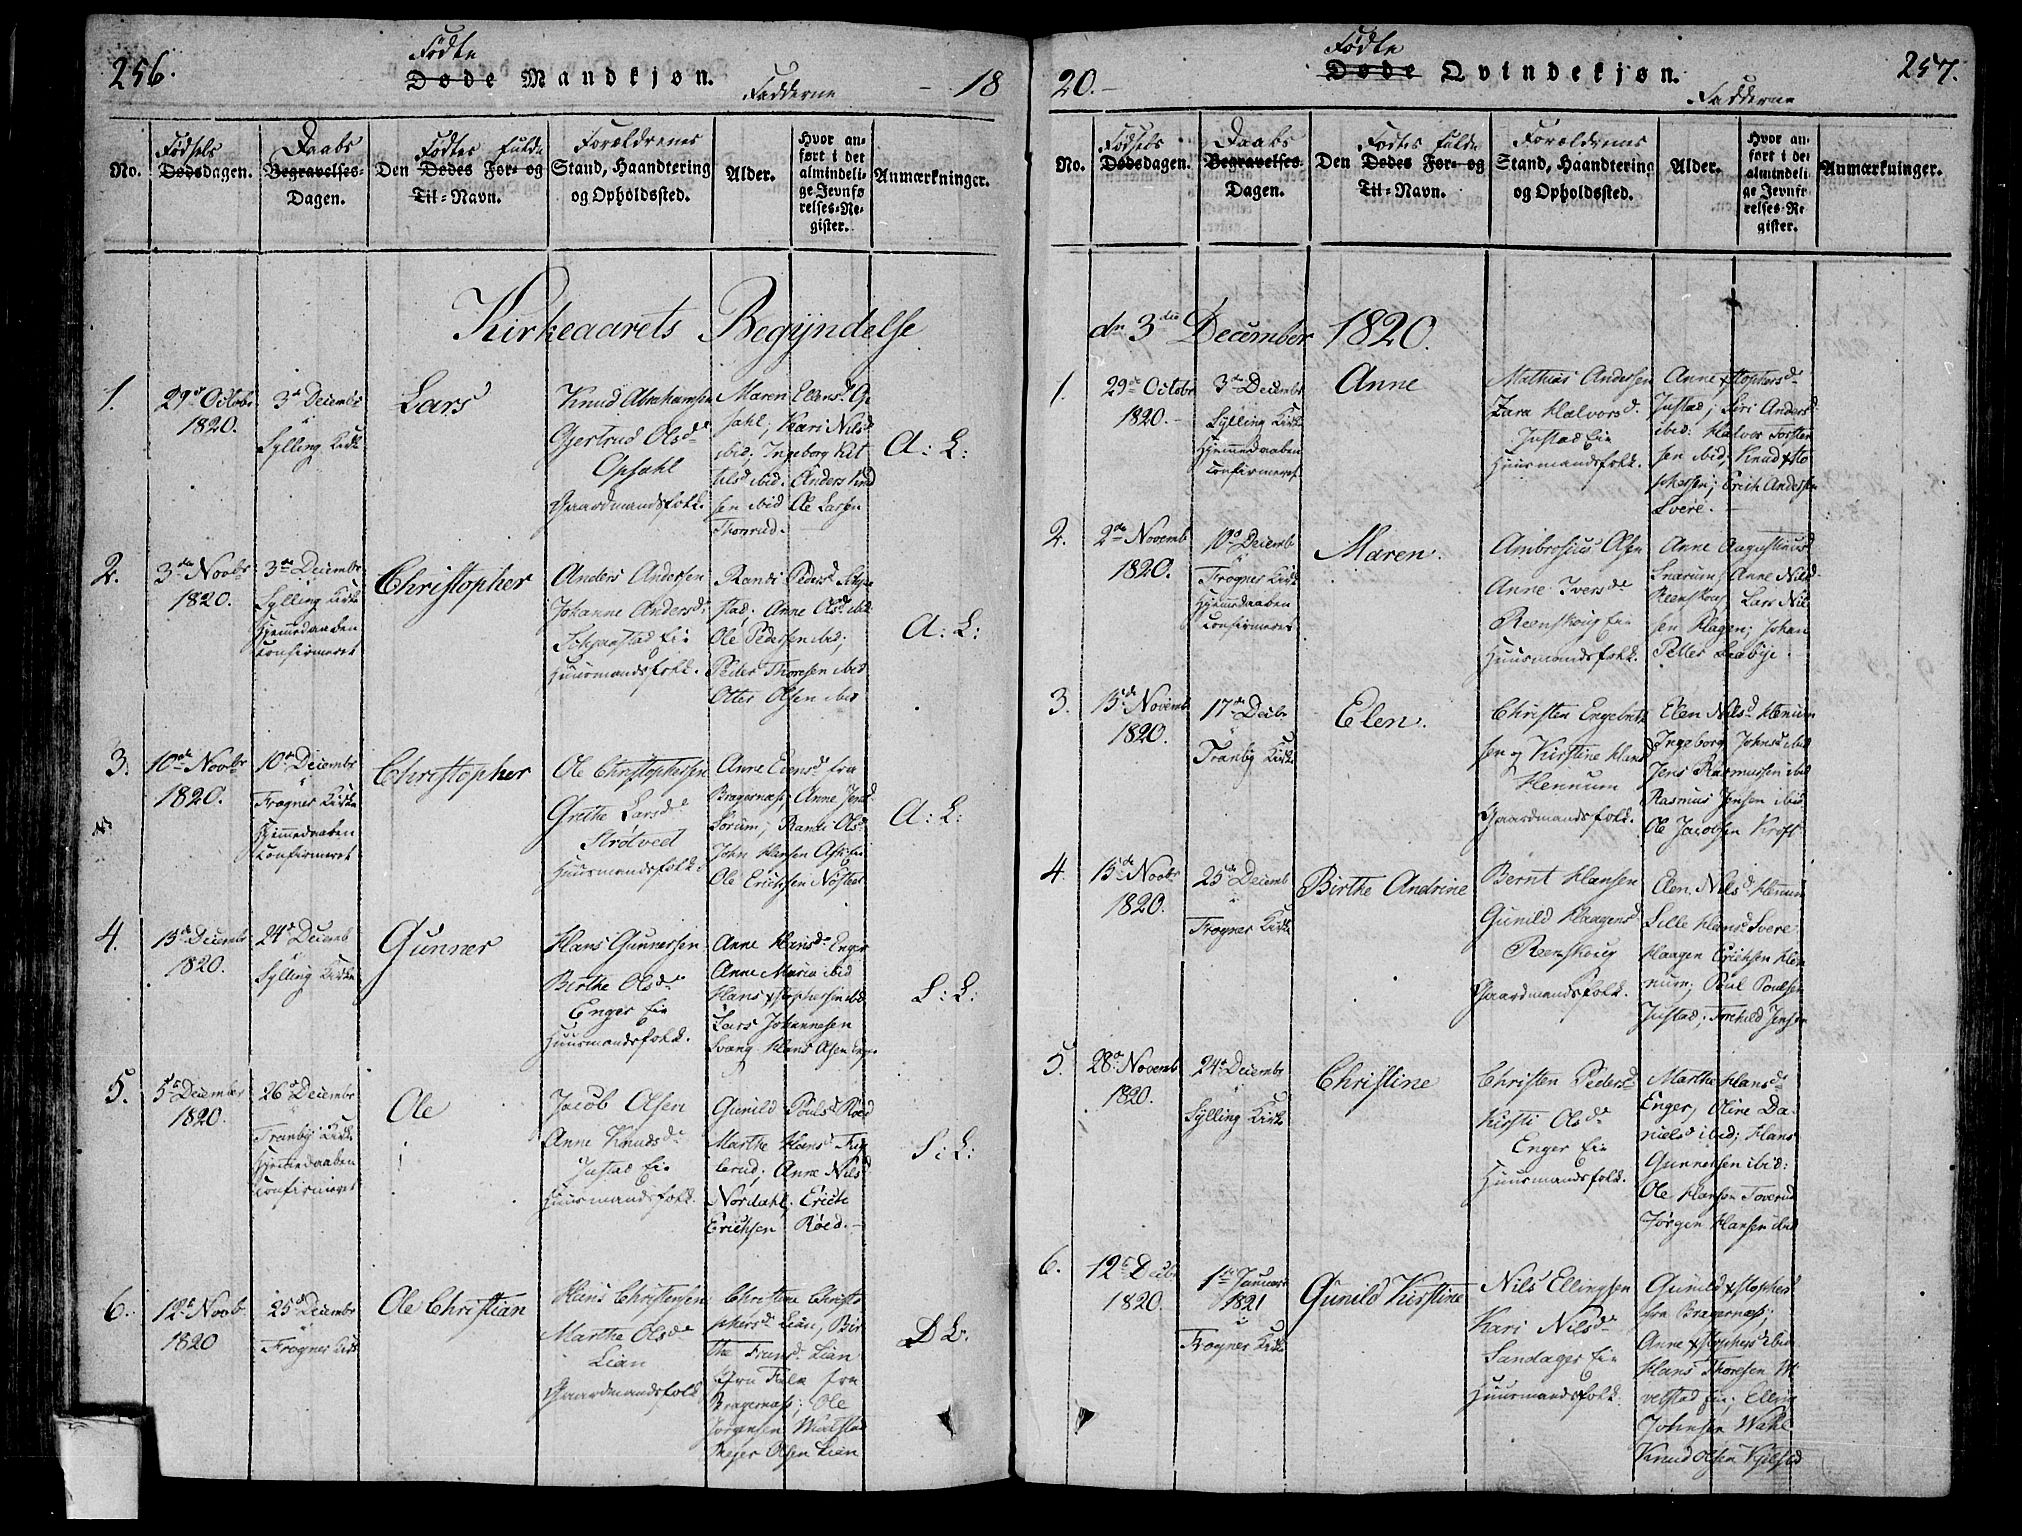 256.
Fødte
Døde Mandkjøn.
Fadderne
18
No.
Fødsels
Dødsdagen.
Daabs
Begravelses-
Dagen.
Den
Fødtes fulde
Dødes For- og
Til-Navn.
Forældrenes
Stand, Haandtering
og Opholdssted.
Alder.
Hvor an-
ført i det
almindeli-
ge Jevnfø
relses-Re-
gister.
Anmærkninger.
Kirkeaarets Begyndelse
1.
29de Octobr
1820.
3de Decembr
Sylling Kirke
Lars
Knud Abrahamsen
Gjertrud Olsd
Opsahl
Gaardmandsfolk.
Maren Ellensd
Kari Nilsd
ibid; Ingeborg Ket
tilsd ibid: Anders Knud
sen ibid Ole Larsen
Thonrud.
A: L:
2.
3de Novbr
1820.
3de Decembr
Sylling Kirke
Hjemedaaben
Confirmeret
Christopher
Anders Andersen
Johanne Andersd
Huusmandsfolk.
Randi Pedersd
stad; Anne Olsd ibid
Ole Pedersen ibid;
Peder Thoresen ibid
Otter Olsen ibid
A: L:
3.
10de Novbr
1820.
10de Decembr
Frogner Kirke
Hjemmedaaben
Confirmeret
Christopher
Ole Christophersen
Grethe Larsd
Strøtvedt
Huusmandsfolk.
Anne Evensd fra
Bragernæs; Anne Jensd
Sørum; Randi Olsd
John Hansen
Ole Erichsen Nøsted
A: L:
4.
13de Decembr
1820.
24de Decemb
Sylling Kirke
Gunner
Hans Gunnersen
Birthe Olsd
Enger Eie
Huusmandsfolk.
Anne Hansd Enger
Anne Maria ibid
Hans Xstophersen ibid
Lars Johannesen
Svang Hans Olsen Enger
S: L:
5.
5te December
1820.
26de Decembr
Tranby Kirke
Hjemedaaben
Confirmeret
Ole
Jacob Olsen
Anne Knudsd
Justad Eie
Huusmandsfolk.
Gunild Poulsd Røed
Marthe Hansd
lerud; Anne Nilsd
Nordahl; Erich
Erichsen Røed.
S: L:
6.
12te Novb
1820
25de Decembr
Frogner Kirke
Ole Christian
Hans Christensen
Marthe Olsd
Lian
Gaardmandsfolk
Christine Christo
phersd Lian; Bir
the Fransd Lian
fra
Bragernæs; Ole
Jørgensen
Olsen Lian
D L:
20.
Fødte
Døde Qvindekjøn.
Fadderne
257.
No.
Fødsels
Dødsdagen.
Daabs
Begravelses-
Dagen.
Den
Fødtes fulde
Dødes For- og
Til-Navn.
Forældrenes
Stand, Haandtering
og Opholdssted.
Alder.
Hvor an-
ført i det
almindeli-
ge Jevnfø
relses-Re
gister.
Anmærkninger.
dn 3die December 1820.
1.
29de Octobr
1820.
3de Decembr
Sylling Kirke
Hjemmedaaben
Confirmeret
Anne
Mathias Andersen
Zara Halvorsd
Justad Eie
Huusmandsfolk.
Anne Xstophersd
Justad; Siri Andersd
ibid: Halvor Torsten
sen ibid; Knud Xsto
phersen; Erich Andersen
Svere.
2.
2de Novemb
1820.
10de Decemb
Frogner Kirke
Hjemedaaben
Confirmeret
Maren.
Ambrosius Olsen
Anne Iversd
Reenskoug Eie
Huusmandsfolk.
Anne Augustinusd
Snarum; Anne Nilsd
Reenskoug; Lars Nil
sen Hagen; Johan
Petter Laabye.
3.
15de Novemb
1820.
17de Decbr
Tranby Kirke
Elen.
Christen Engebrets
sen og Kirstine Hansd
Hennum
Gaardmandsfolk.
Elen Nilsd Hennum
Ingeborg Johnsd ibid
Jens Rasmussen ibid
Rasmus Jensen ibid
Ole Jacobsen Kroft
4.
15de Novbr
1820.
25de Decemb
Frogner Kirke
Birthe Andrine
Bernt Hansen
Gunild Haagensd
Reenskoug
Gaardmandsfolk.
Elen Nilsd Hennum
Sille Hansd Svere
Haagen Erichsen Hen
num; Poul Poulsen
Justad; Torkild Jensen
5.
28de Novemb
1820.
24de Decembr
Sylling Kirke
Christine
Christen Pedersd
Kirsti Olsd
Enger Eie
Huusmandsfolk.
Marthe Hansd
Enger, Oline Da-
nielsd ibid; Hans
Gunnersen ibid:
Ole Hansen Toverud
Jørgen Hansen ibid
6.
12te Decbr
1820.
1de Januar
1821
Frogner Kirke
Gunild Kirstine
Nils Ellingsen
Kari Nilsd
Sandager Eie
Huusmandsfolk.
Gunild Xstophersd
fra Bragernæs;
Anne Xstophersd ibid
Hans Thoresen
Eie; Elling
Johnsen Wahl
Knud Olsen